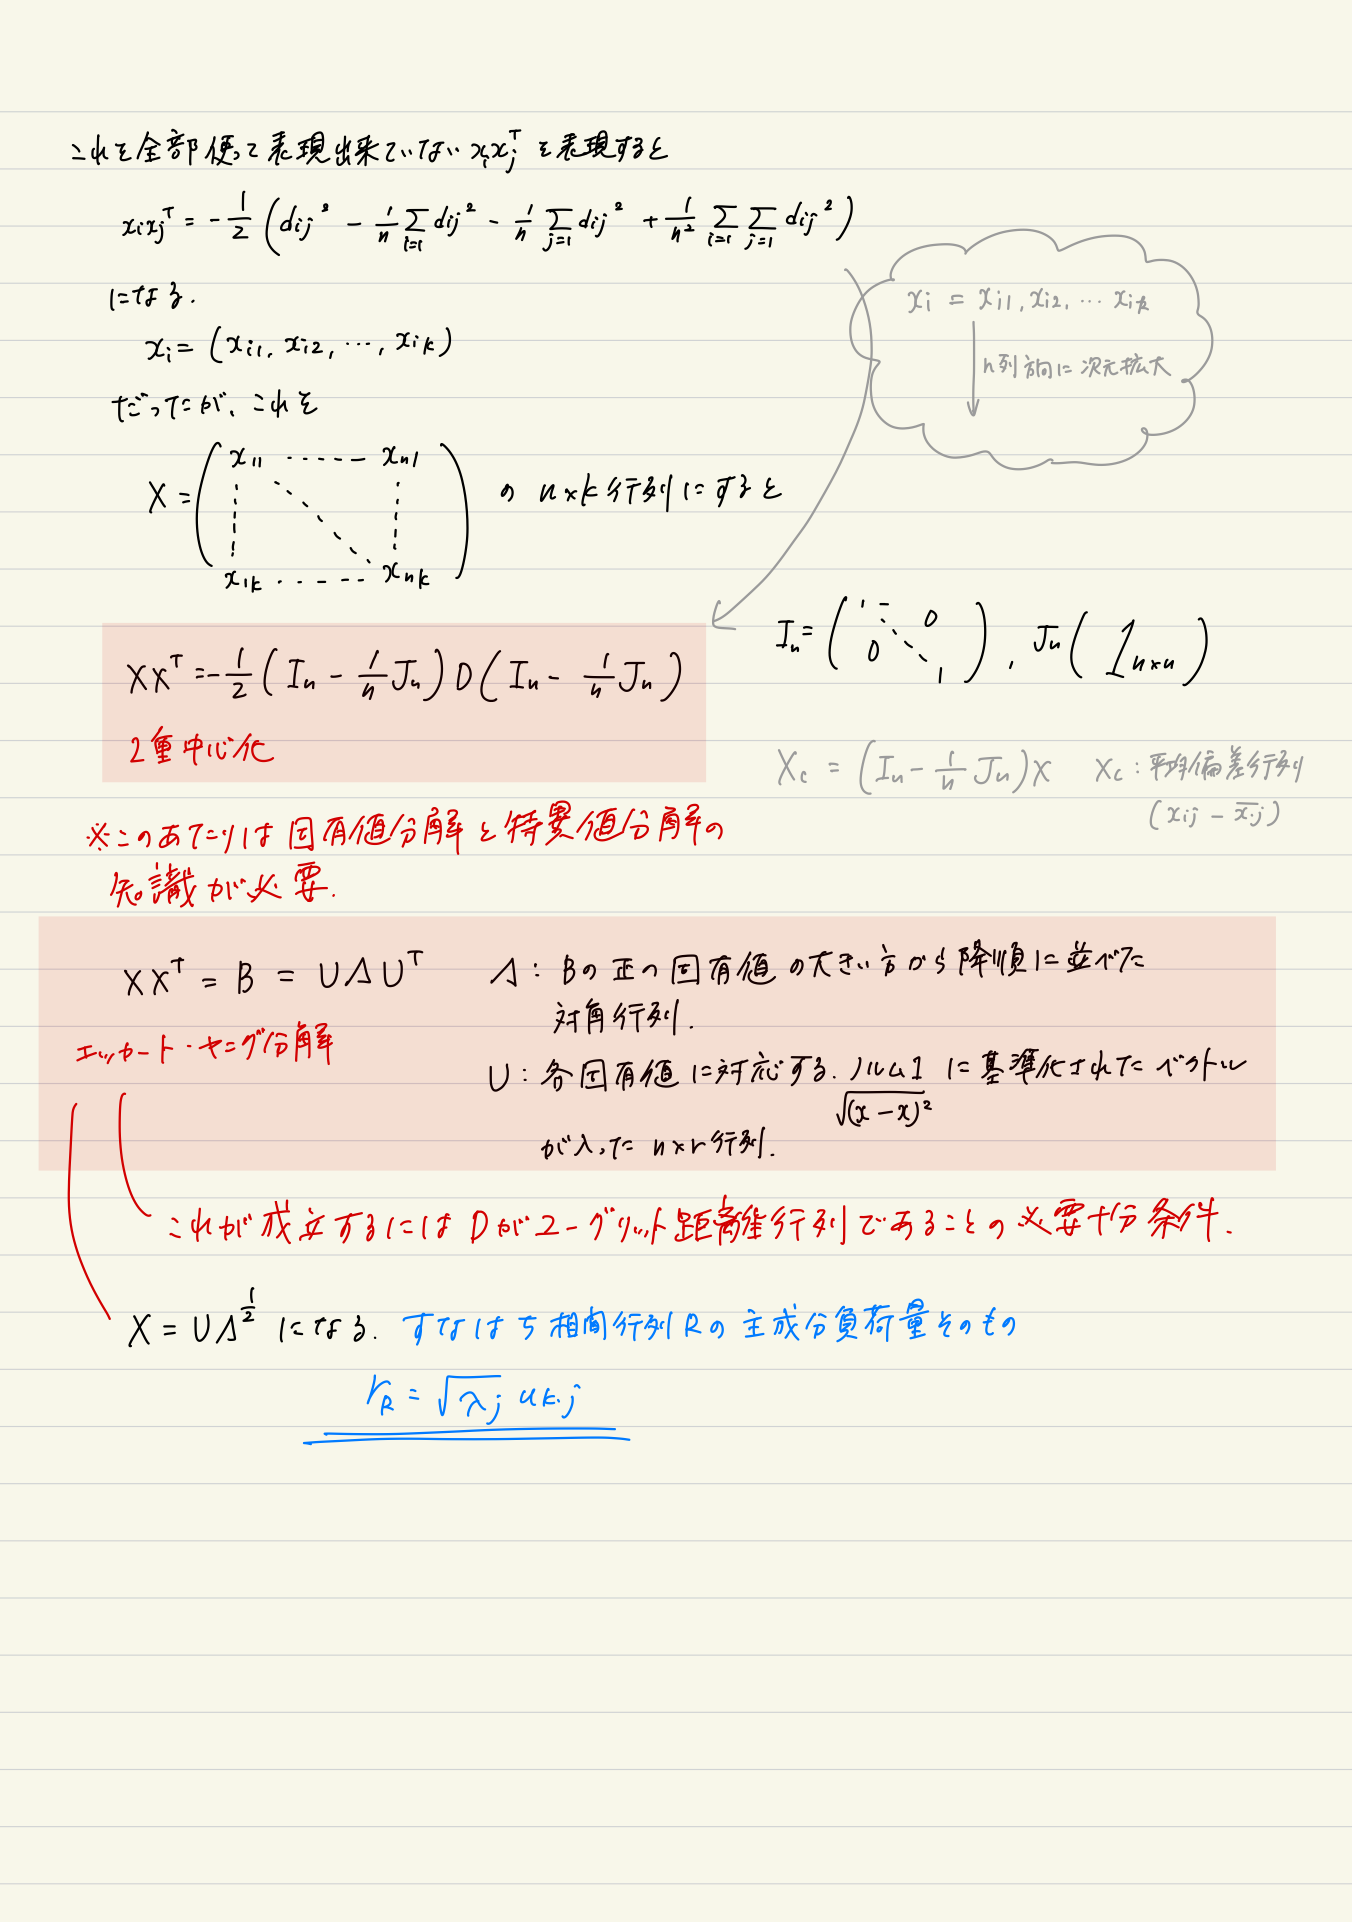 これを全部使って表現出来ていない xᵢxⱼᵀ を表現すると
xᵢxⱼᵀ = -1/2 ( dij² - 1/n Σ_{i=1} dij² - 1/n Σ_{j=1} dij² + 1/n² Σ_{i=1} Σ_{j=1} dij² )
になる.
xᵢ = (xi1, xi2, ..., xik)
だったが、これを
xi = xi1, xi2, ... xik
n列方向に次元拡大
X = ( x11 ------ xn1
x1k ------ xnk ) の n×k 行列にすると
XXᵀ = -1/2 ( In - 1/n Jn ) D ( In - 1/n Jn )
2重中心化
In = ( 1 0
0 1 ) , Jn ( 1n×n )
Xc = ( In - 1/n Jn ) X Xc : 平均偏差行列
( xij - x̄j )
※このあたりは固有値分解と特異値分解の
知識が必要.
XXᵀ = B = UΛUᵀ
エッカート・ヤング分解
Λ : Bの正の固有値の大きい方から降順に並べた
対角行列.
U : 各固有値に対応する. ノルム1 に基準化されたベクトル
√(x-x)²
が入った n×r 行列.
これが成立するにはDがユークリット距離行列であることの必要十分条件.
X = UΛ^{1/2} になる. すなはち相関行列Rの主成分負荷量そのもの
r_R = √λj uk.j